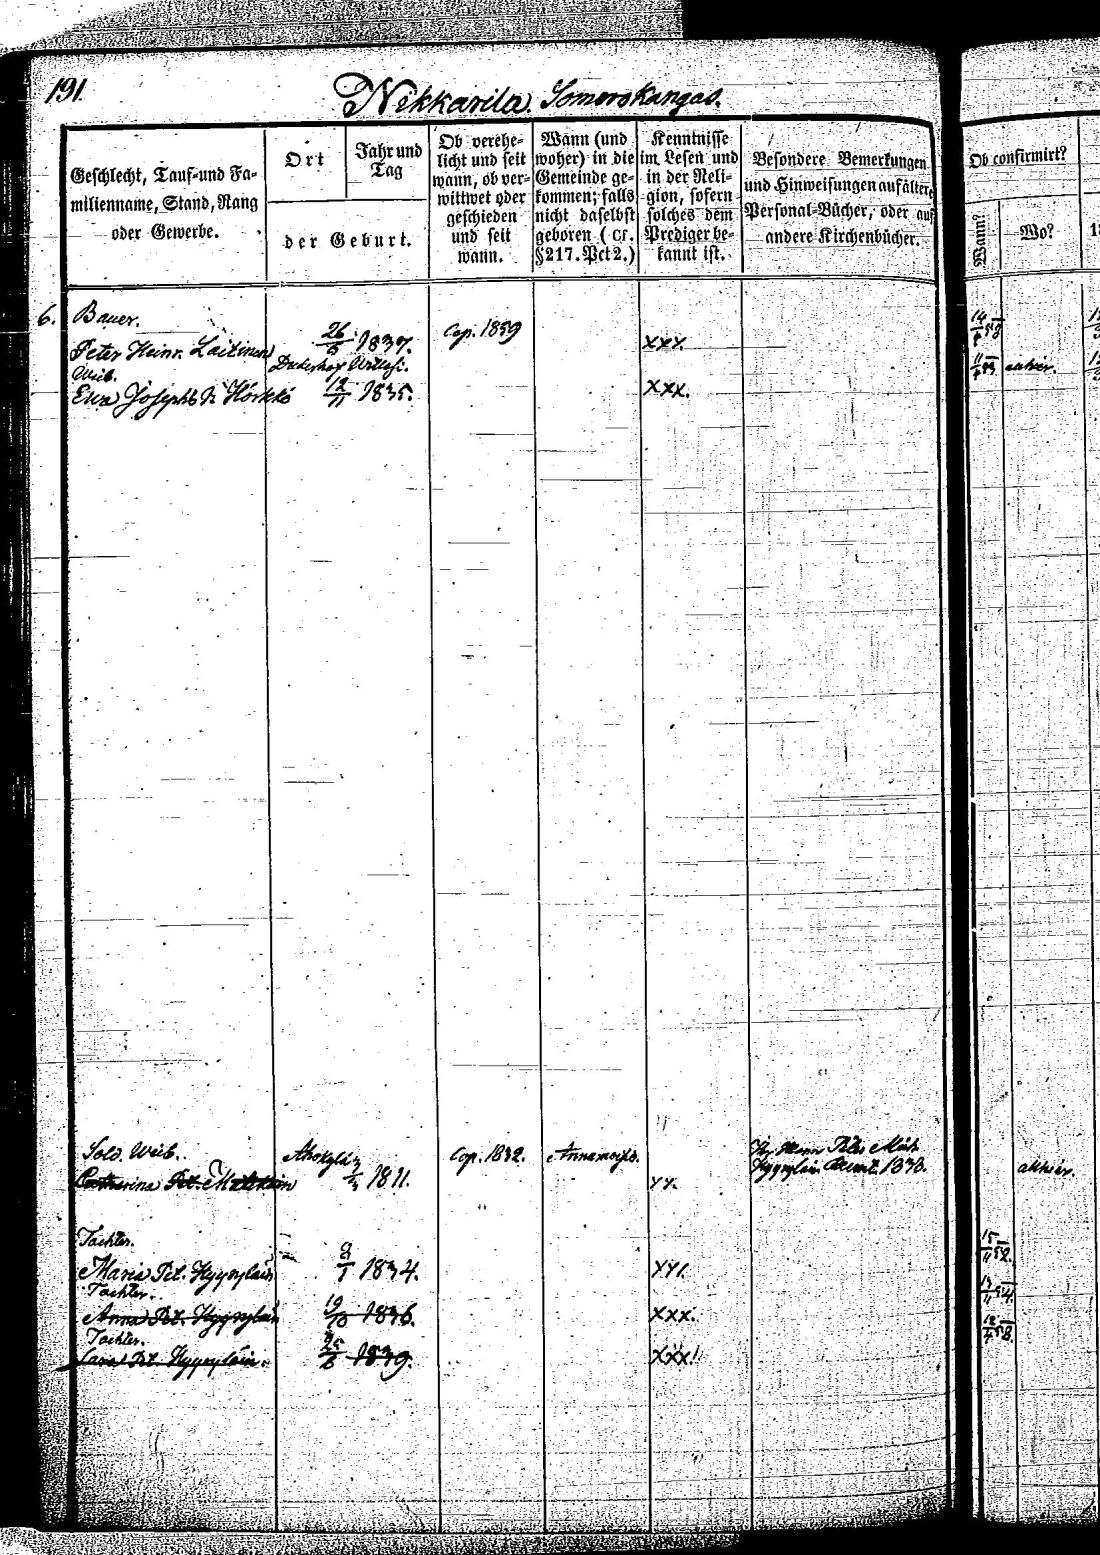 191.
Nekkarila Somerokangas.
Geschlecht, Tauf- und Fa-
milienname, Stand, Rang
oder Gewerbe.
Ort
Jahr und
Tag
der Geburt.
Ob verehe-
licht und seit
wann, ob ver-
wittwet oder
geschieden
und seit
wann.
Wann (und
woher) in die
Gemeinde ge-
kommen; falls
nicht daselbst
geboren (Cf.
§ 217. Pct 2.)
Kenntnisse
im Lesen und
in der Reli-
gion, sofern
solches dem
Prediger be-
kannt ist.
Besondere Bemerkungen
und Hinweisungen auf ältere
Personal-Bücher, oder auf
andere Kirchenbücher.
Ob confirmirt?
Wann?
Wo?
6. Bauer.
Peter Heinr. Laitinen 26/3 1837. Cop. 1859 XXX.
Weib.
Eva Josephs T. Hörkkö 12/11 1835. XXX.
Sold. Weib. Cop. 1832.
Catharina Pet. 1811. XX.
Peter Matts
1878.
Tochter.
Maria Pet. Hyyryläin 1834. XXX.
Tochter.
Anna Pet. Hyyryläin 19/10 1836. XXX.
Tochter.
Sara Pet. Hyyryläin. 1839. XXX.